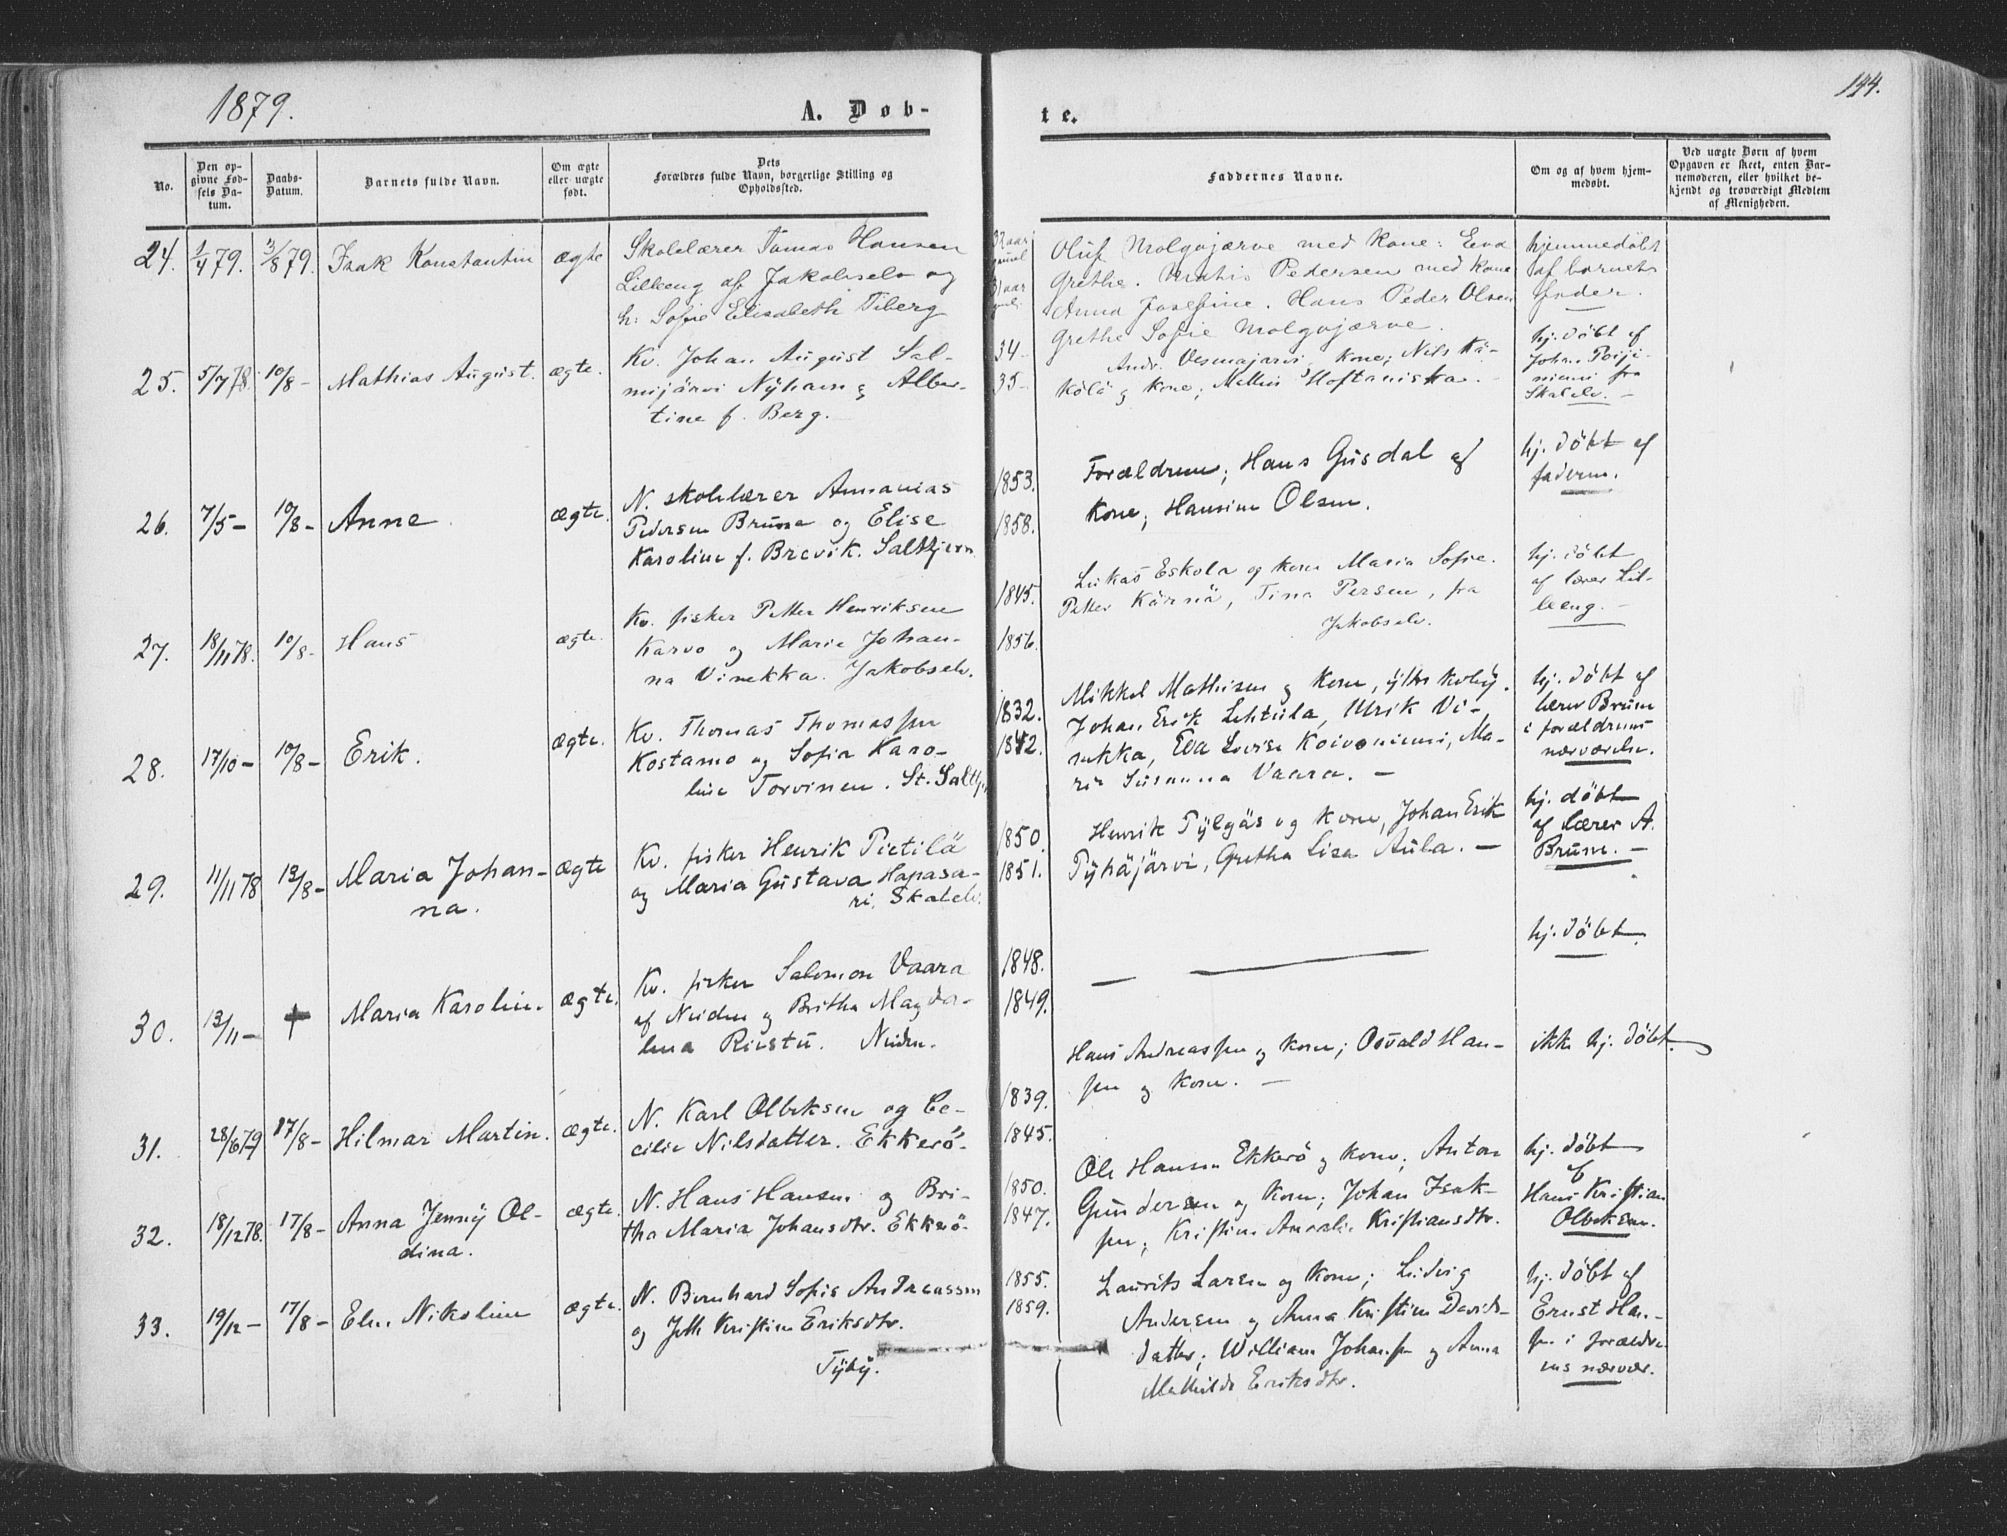 1879.
A. Døb-
te.
144.
No.
Den op-
givne Fød-
sels Da-
tum.
Daabs-
Datum.
Barnets fulde Navn.
Om ægte
eller uægte
født.
Dets
Forældres fulde Navn, borgerlige Stilling og
Opholdssted.
Faddernes Navne.
Om og af hvem hjem-
medøbt.
Ved uægte Børn af hvem
Opgaven er skeet, enten Bar-
nemoderen, eller hvilket be-
kjendt og troværdigt Medlem
af Menigheden.
24. 1/4 79. 3/8 79. Isak Konstantin ægte
Skolelærer Tomas Hansen
Lilleeng af Jakobselv og
h: Sofie Elisabeth Tiberg
Oluf Molgojærve med Kone: Eva
Grethe. Matis Pedersen med Kone
Anna Josefine. Hans Peder Olsen
Grethe Sofie Molgojærve.
hjemmedøbt
af barnets
fader.
25. 5/7 78. 10/8 - Mathias August. ægte.
Kv. Johan August Sal-
mijärvi Nyhavn & Alber-
tine f. Berg.
34-
35-
Andr. Vesmajarvi, Kone; Nils Kä-
kölä & Kone; Mathis Hoftaniska. -
hj. døbt af
Johan
niemi fra
Skalelv. -
26. 7/5 - 10/8 - Anne. ægte.
N. skolelærer Annanias
Pedersen Brune og Elise
Karoline f. Brevik. Saltkjern
1853.
1858.
Forældrene; Hans Gusdal og
Kone; Hansine Olsen.
hj. døbt af
faderen.
27. 18/11 78. 10/8 - Hans ægte.
Kv. fisker Petter Henriksen
Karvo og Marie Johan-
na Vinekka. Jakobselv.
1845.
1856.
Lukas Eskola og Kone Maria Sofie.
Petter Kärnä, Tina Persen, fra
Jakobselv.
hj. døbt
af lærer Lil-
leeng. -
28. 17/10 - 10/8 - Erik. ægte.
Kv. Thomas Thomassen
Kostamo og Sofia Karo-
line Torvinen. St. Saltkj.
1832.
1842.
Mikkel Mathisen & Kone,
Johan Erik Lehtula, Ulrik Vi-
nekka, Eva Lovisa Koivoniemi, Ma-
ria Susanna Vaara. -
hj. døbt af
lærer Brune
i forældrenes
nærværelse.
29. 11/11 78 12/8 - Maria Johan-
na. ægte
Kv. fisker Henrik Pietilä
og Maria Gustava Hapasa-
ri. Skalelv.
1850.
1851.
Henrik Pylgäs og Kone, Johan Erik
Pyhäjärvi, Gretha Lisa Aula. -
hj. døbt
af lærer A.
Brune. -
30. 13/11 - + Maria Karoline. ægte.
Kv. fisker Salomon Vaara
af Neiden & Britha Magda-
lena Riestu. Neiden.
1848.
1849.
hj. døbt.
31. 28/6 79 17/8 - Hilmar Martin. ægte.
N. Karl Olbeksen og Ce-
cilie Nilsdatter. Ekkerö.
1839.
1845.
Hans Andreassen & Kone; Osvald Han-
sen & Kone. -
ikke hj. døbt.
32. 18/12 78. 17/8 - Anna Jenny Ol-
dina. ægte.
N. Hans Hansen & Bri-
tha Maria Johansdtr. Ekkerö-
1850.
1847.
Ole Hansen Ekkerö & Kone; Anton
Gundersen & Kone; Johan Isak-
sen; Kristine Amalie Kristiansdtr.
hj. døbt
af
Hans Kristian
Olbeksen.
33. 19/12 - 17/8 - Elen Nikoline ægte.
N. Bernhard Sofis Andreassen
og Jeth Kristine Eriksdtr.
Tyby.
1855.
1859.
Laurits Larsen og Kone; Ludvig
Andersen & Anna Kristine Davids-
datter; William Johansen & Anna
Mathilde Eriksdtr.
hj. døbt af
Ernst Han-
sen i forældre-
nes nærvær.